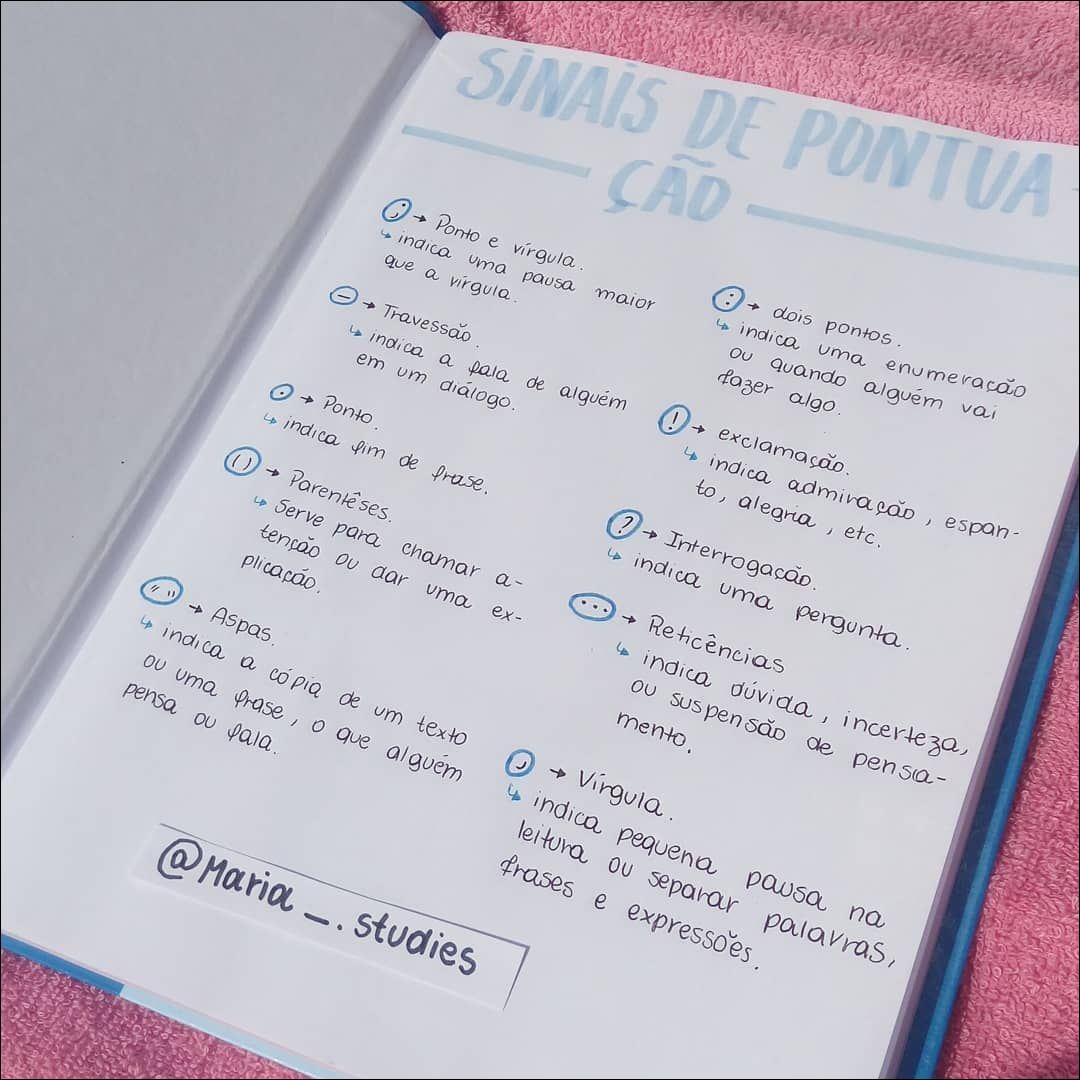 SINAIS DE PONTUA-
ÇÃO
; → Ponto e vírgula.
↳ indica uma pausa maior
que a vírgula.
– → Travessão.
↳ indica a fala de alguém
em um diálogo.
. → Ponto.
↳ indica fim de frase.
( ) → Parentêses.
↳ Serve para chamar a-
tenção ou dar uma ex-
plicação.
" " → Aspas.
↳ indica a cópia de um texto
ou uma frase, o que alguém
pensa ou fala.
: → dois pontos.
↳ indica uma enumeração
ou quando alguém vai
fazer algo.
! → exclamação.
↳ indica admiração, espan-
to, alegria, etc.
? → Interrogação.
↳ indica uma pergunta.
... → Reticências
↳ indica dúvida, incerteza,
ou suspensão de pensa-
mento.
, → Vírgula.
↳ indica pequena pausa na
leitura ou separar palavras,
frases e expressões.
@Maria_.studies